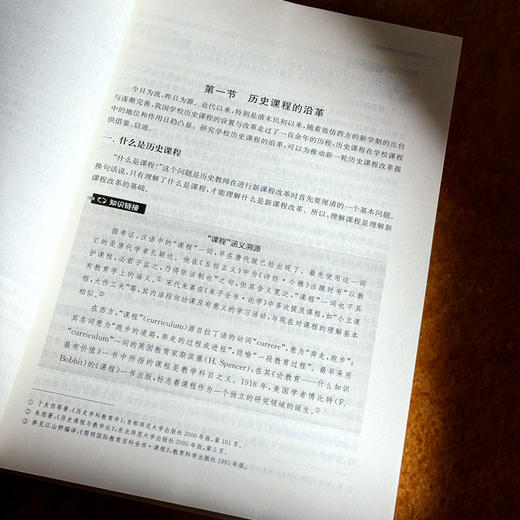 第一节 历史课程的沿革
今日为流，昨日为源。近代以来，特别是清末民初以来，随着效仿西方的新学制的出台
与逐渐完善，我国学校历史课程的设置与改革走过了一百余年的历程，历史课程在学校课程
中的地位和作用日趋凸显。研究学校历史课程的沿革，可以为推动新一轮历史课程改革提
供借鉴、启迪。
一、什么是历史课程
“什么是课程？”这个问题是历史教师在进行新课程改革时首先要厘清的一个基本问题。
换句话说，只有理解了什么是课程，才能理解什么是新课程改革。所以，理解课程是理解新
课程改革的基础。
知识链接
“课程”涵义溯源
据考证，汉语中的“课程”一词，早在唐代就已经出现了。最先使用这一词
汇的是唐代学者孔颖达。他在《五经正义》中为《诗经·小雅》注疏时有“以教
护课程，必君子监之，乃得依法制也”之句，但其含义宽泛，“课程”一词也不具
有教育学上的涵义。① 宋代朱熹在《朱子全书·论学》中多次提及课程，如“小立课
程，大作工夫”等，其内涵指向功课及有意义的学习活动，与现在对课程的理解基本
相似。②
在西方，“课程”（curriculum）源自拉丁语的动词“currere”，意为“奔走、跑步”；
其名词意为“跑步的道路，奔走的过程或进程”，隐喻“一段教育过程”。最早采用
“curriculum”一词的英国教育家斯宾塞（H. Spencer），在其《论教育——什么知识
最有价值》一书中所指的课程是教学科目之义。1918年，美国学者博比特（F.
Bobbit）的《课程》一书出版，标志着课程作为一个独立的研究领域的诞生。③
① 于友西等著：《历史学科教育学》，首都师范大学出版社2000年版，第101页。
② 朱煜著：《历史课程与教学论》，东北师范大学出版社2005年版，第5页。
③ 参见江山野编译：《简明国际教育百科全书·课程》，教育科学出版社1991年版。